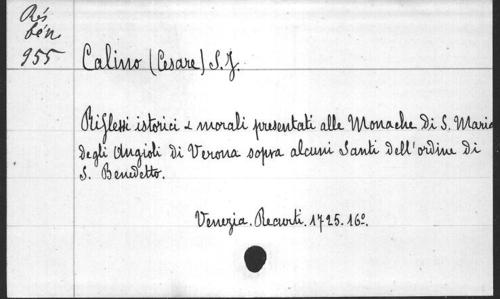 Rés
bén
955
Calino (Cesare) S. J.
Riflessi istorici & morali presentati alle Monache di S. Maria
degli Angioli di Verona sopra alcuni Santi dell'ordine di
S. Benedetto.
Venezia. Recurti. 1725. 16º.